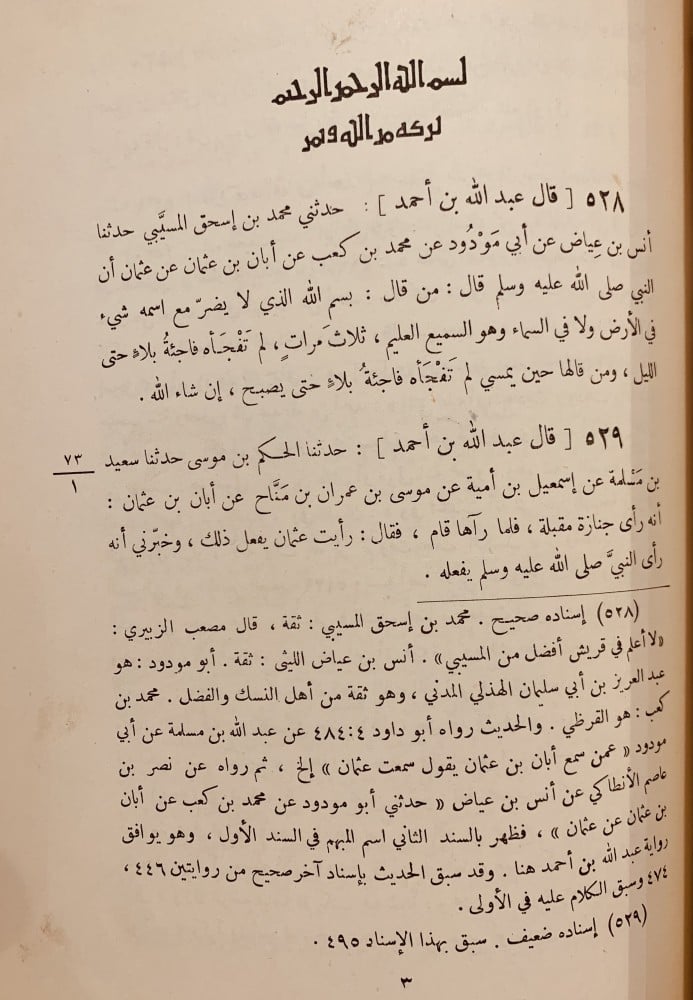 بسم الله الرحمن الرحيم
بركة من الله ونمر
٥٢٨ [ قال عبد الله بن أحمد ] : حدثني محمد بن إسحق المسيَّبي حدثنا
أنس بن عِياض عن أبي مَوْدُود عن محمد بن كعب عن أبان بن عثمان عن عثمان أن
النبي صلى الله عليه وسلم قال : من قال : بسم الله الذي لا يضرّ مع اسمه شيء
في الأرض ولا في السماء وهو السميع العليم ، ثلاث مَرات ٍ، لم تَفْجَـأه فاجئةُ بلاءٍ حتى
الليل ، ومن قالها حين يمسي لم تَفْجَأه فاجئةُ بلاءٍ حتى يصبح ، إن شاء الله .
٥٢٩ [ قال عبد الله بن أحمد ] : حدثنا الحكم بن موسى حدثنا سعيد
٧٣
١
بن مَسْلمة عن إسمعيل بن أمية عن موسى بن عمران بن مَنَّاح عن أبان بن عثمان :
أنه رأى جنازة مقبلة ، فلما رآها قام ، فقال : رأيت عثمان يفعل ذلك ، وخبّرني أنه
رأى النبيَّ صلى الله عليه وسلم يفعله .
(٥٢٨) إسناده صحيح . محمد بن إسحق المسيبي : ثقة ، قال مصعب الزبيري :
«لا أعلم في قريش أفضل من المسيبي» . أنس بن عياض الليثى : ثقة . أبو مودود : هو
عبد العزيز بن أبي سليمان الهذلي المدني ، وهو ثقة من أهل النسك والفضل . محمد بن
كعب : هو القرظي . والحديث رواه أبو داود ٤ : ٤٨٤ عن عبد الله بن مسلمة عن أبي
مودود « عمن سمع أبان بن عثمان يقول سمعت عثمان » إلخ ، ثم رواه عن نصر بن
عاصم الأنطاكي عن أنس بن عياض « حدثني أبو مودود عن محمد بن كعب عن أبان
بن عثمان عن عثمان » ، فظهر بالسند الثاني اسم المبهم في السند الأول ، وهو يوافق
رواية عبد الله بن أحمد هنا . وقد سبق الحديث بإسناد آخر صحيح من روايتين ٤٤٦ ،
٤٧٤ وسبق الكلام عليه في الأولى .
(٥٢٩) إسناده ضعيف . سبق بهذا الإسناد ٤٩٥ .
٣